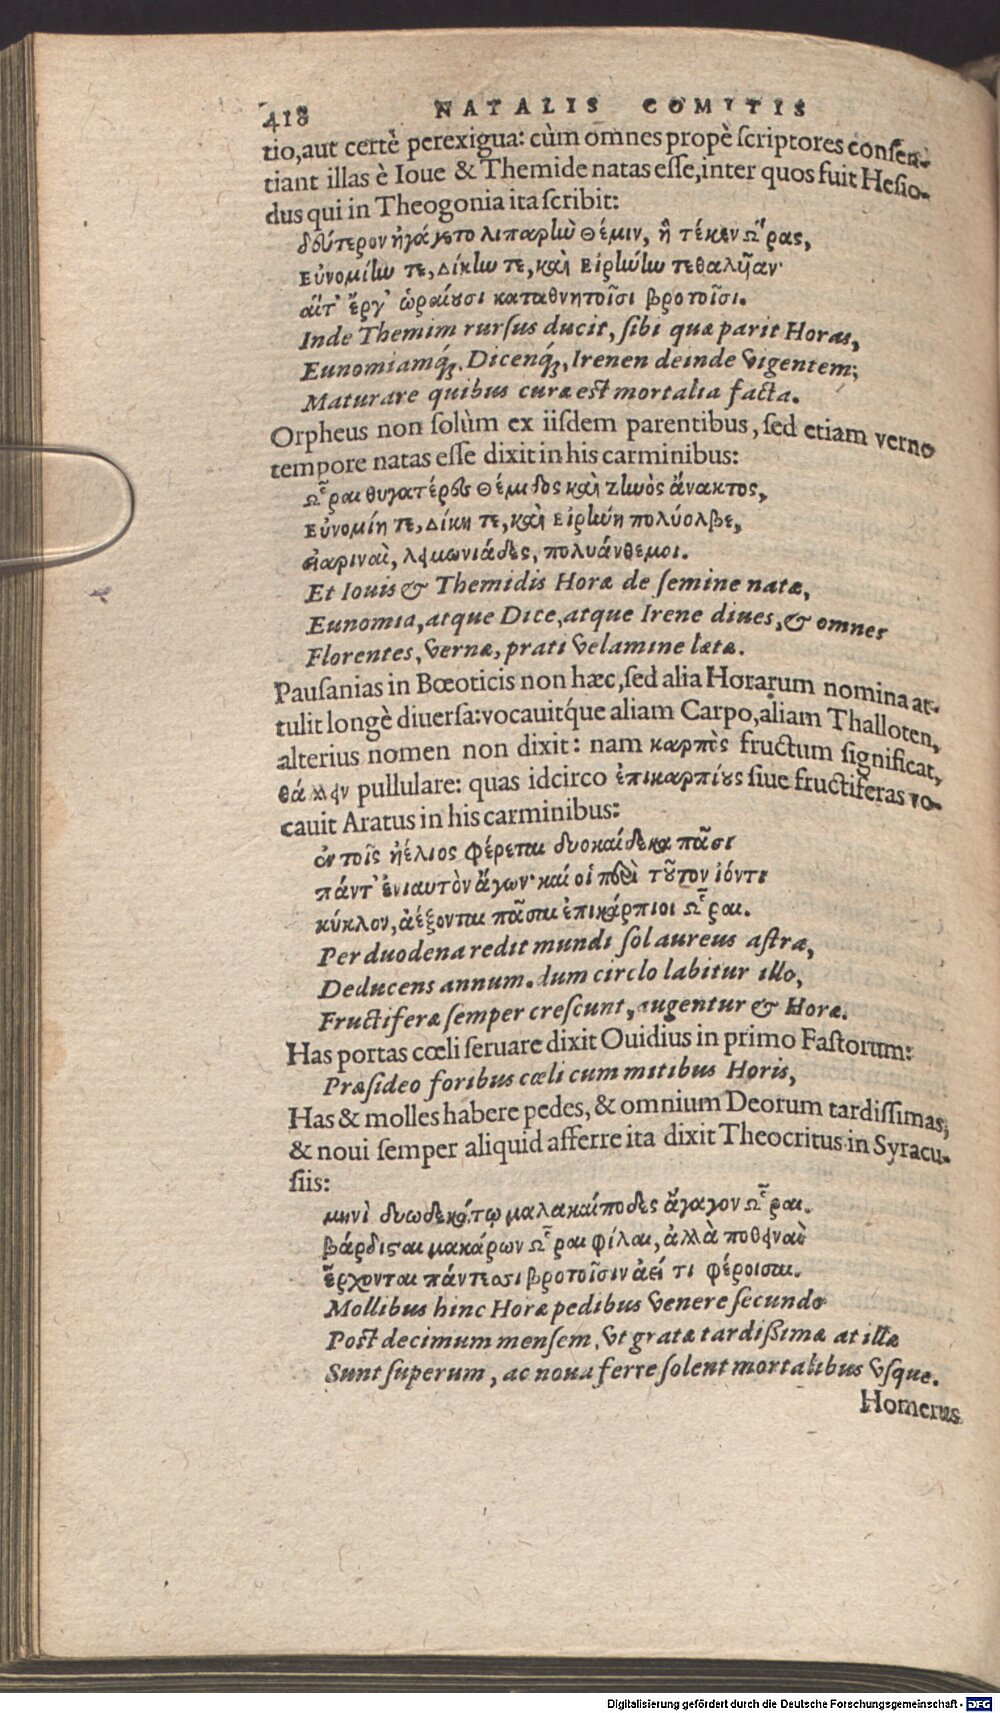 418 NATALIS COMITIS
tio,aut certè perexigua: cùm omnes propè ſcriptores conſen-
tiant illas è Ioue & Themide natas eſſe,inter quos fuit Heſio-
dus qui in Theogonia ita ſcribit:
δεύτερον ἠγάγετο λιπαρὴν Θέμιν, ἣ τέκεν Ὥρας,
Εὐνομίην τε, Δίκην τε, καὶ Εἰρήνην τεθαλῆαν·
αἵτ' ἔργ' ὡραίουσι καταθνητοῖσι βροτοῖσι.
Inde Themim rurſus ducit, ſibi quæ parit Horas,
Eunomiamq́;, Dicenq́;, Irenen deinde vigentem;
Maturare quibus curæ eſt mortalia facta.
Orpheus non ſolùm ex iiſdem parentibus, ſed etiam verno
tempore natas eſſe dixit in his carminibus:
Ὧραι θυγατέρες Θέμιδος καὶ Ζηνὸς ἄνακτος,
Εὐνομίη τε, Δίκη τε, καὶ Εἰρήνη πολύολβε,
εἰαριναὶ, λειμωνιάδες, πολυάνθεμοι.
Et Iouis & Themidis Horæ de ſemine natæ,
Eunomia, atque Dice, atque Irene diues, & omnes
Florentes, vernæ, prati velamine lætæ.
Pauſanias in Bœoticis non hæc, ſed alia Horarum nomina at-
tulit longè diuerſa: vocauit q́ue aliam Carpo, aliam Thalloten,
alterius nomen non dixit: nam καρπὸς fructum ſignificat,
θάλλειν pullulare: quas idcirco ἐπικαρπίους ſiue fructiferas vo-
cauit Aratus in his carminibus:
ἐν τοῖς ἠέλιος φέρεται δυοκαίδεκα πᾶσι
πάντ' ἐνιαυτὸν ἄγων· καί οἱ περὶ τοῦτον ἰόντι
κύκλον, ἀέξονται πᾶσαι ἐπικάρπιοι Ὧραι.
Per duodena redit mundi ſol aureus aſtra,
Deducens annum. dum circlo labitur illo,
Fructiferæ ſemper creſcunt, augentur & Horæ.
Has portas cœli ſeruare dixit Ouidius in primo Faſtorum:
Præſideo foribus cœli cum mitibus Horis,
Has & molles habere pedes, & omnium Deorum tardiſſimas,
& noui ſemper aliquid afferre ita dixit Theocritus in Syracu-
ſiis:
μηνὶ δυωδεκάτῳ μαλακαίποδες ἄγαγον Ὧραι.
βάρδισται μακάρων Ὧραι φίλαι, ἀλλὰ ποθειναὶ
ἔρχονται πάντεσσι βροτοῖσιν ἀεί τι φέροισαι.
Mollibus hinc Horæ pedibus venere ſecundo
Poſt decimum menſem, vt gratæ tardißimæ at illæ
Sunt ſuperum, ac noua ferre ſolent mortalibus vſque.
Homerus
Digitalisierung gefördert durch die Deutsche Forschungsgemeinschaft - DFG